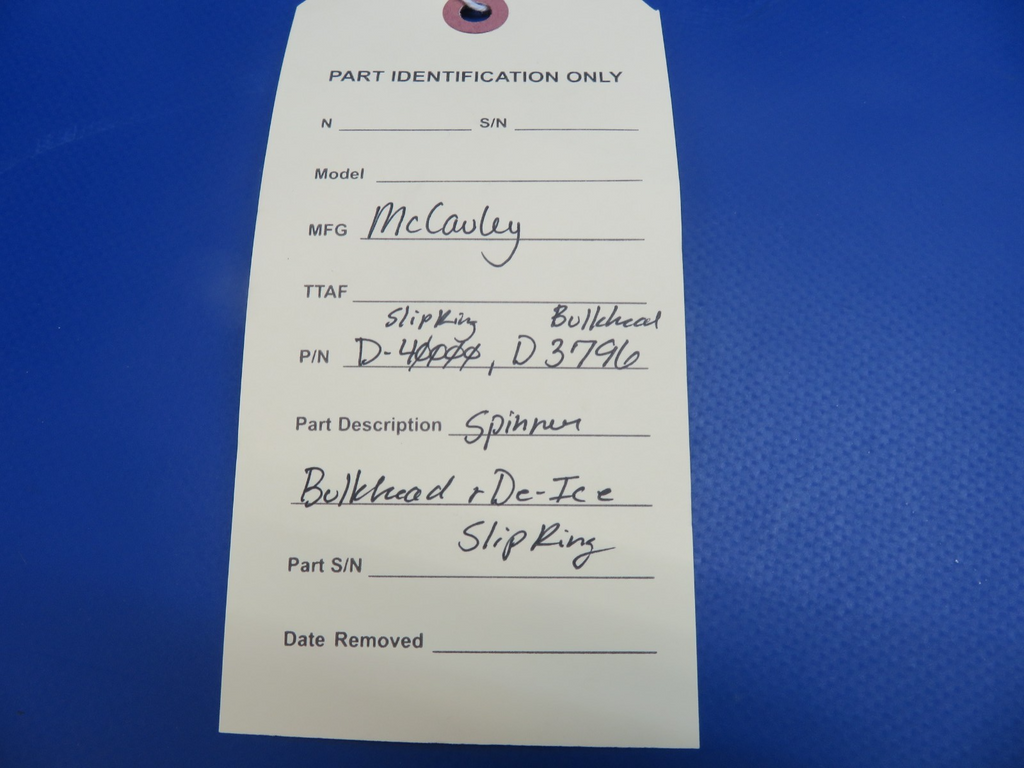 PART IDENTIFICATION ONLY
N S/N
Model
MFG McCauley
TTAF
SlipRing Bulkhead
P/N D-40000, D3796
Part Description Spinner
Bulkhead + De-Ice
Slip Ring
Part S/N
Date Removed